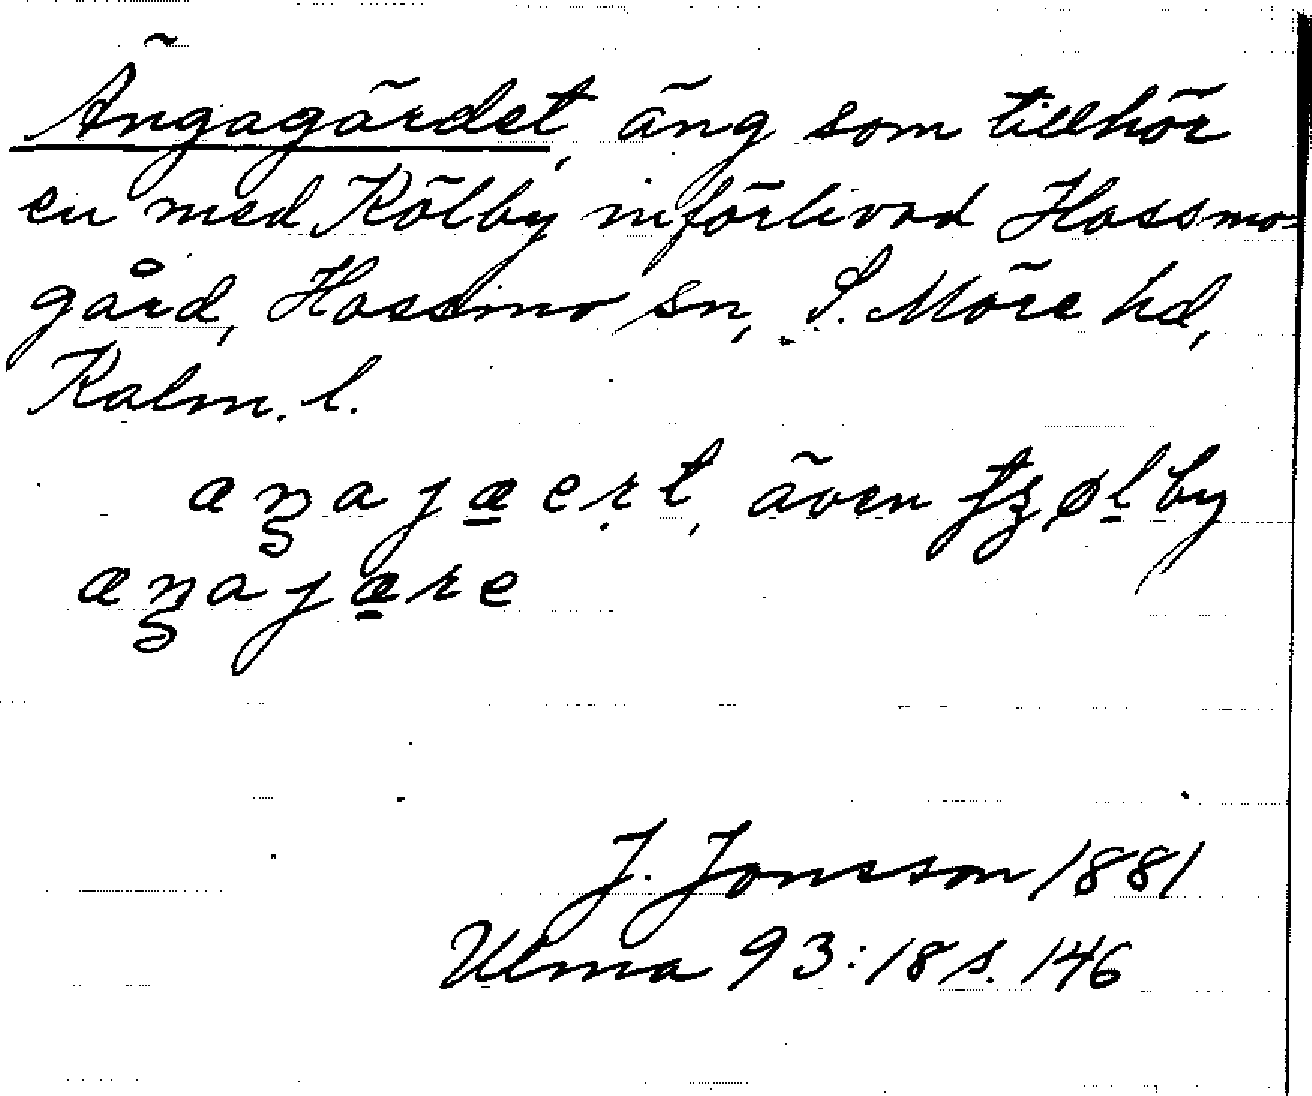 Ängagärdet, äng som tillhör
en med Kölby införlivad Hossmo-
gård, Hossmo sn, S. Möre hd,
Kalm. l.
även
J. Jonsson 1881
Ulma 93:18 s. 146